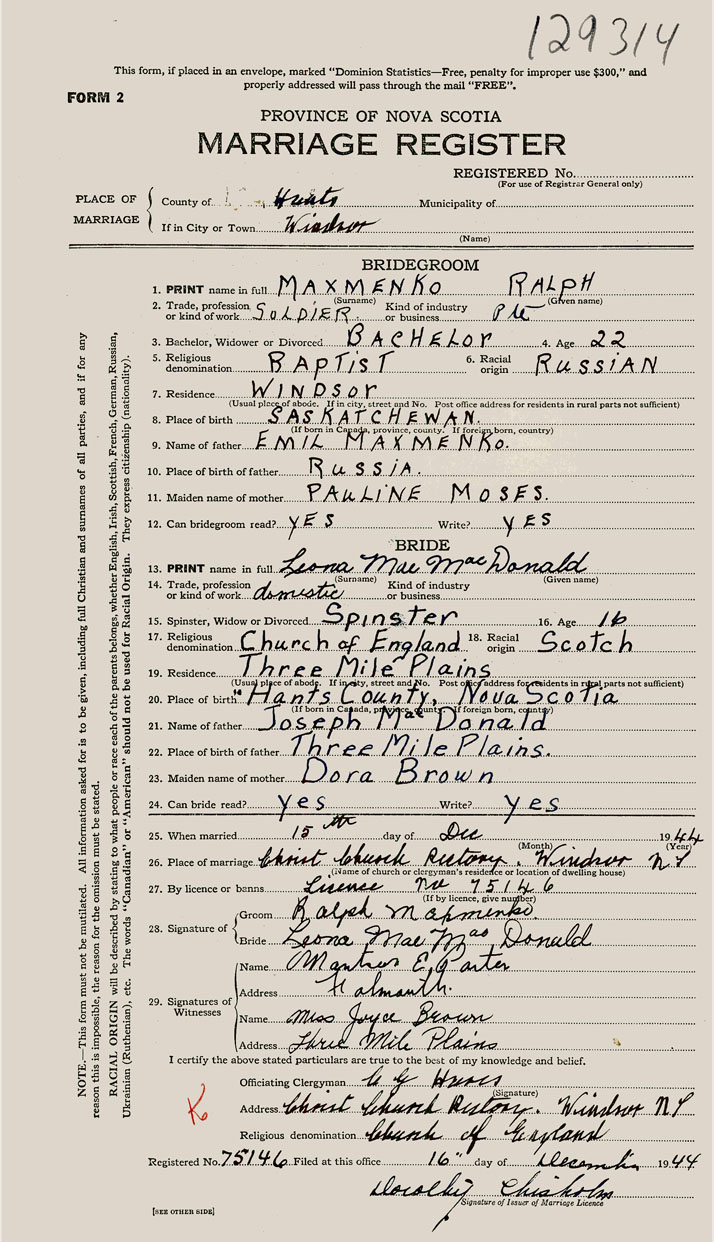 129314
This form, if placed in an envelope, marked "Dominion Statistics—Free, penalty for improper use $300," and
properly addressed will pass through the mail "FREE".
FORM 2
PROVINCE OF NOVA SCOTIA
MARRIAGE REGISTER
REGISTERED No.
(For use of Registrar General only)
PLACE OF MARRIAGE
County of Hants Municipality of
If in City or Town Windsor
(Name)
BRIDEGROOM
1. PRINT name in full MAXMENKO RALPH
(Surname) (Given name)
2. Trade, profession or kind of work SOLDIER Kind of industry or business Pte
3. Bachelor, Widower or Divorced BACHELOR 4. Age 22
5. Religious denomination BAPTIST 6. Racial origin RUSSIAN
7. Residence WINDSOR
(Usual place of abode. If in city, street and No. Post office address for residents in rural parts not sufficient)
8. Place of birth SASKATCHEWAN.
(If born in Canada, province, county. If foreign born, country)
9. Name of father EMIL MAXMENKO.
10. Place of birth of father RUSSIA.
11. Maiden name of mother PAULINE MOSES.
12. Can bridegroom read? YES Write? YES
BRIDE
13. PRINT name in full Leona Mae MacDonald
(Surname) (Given name)
14. Trade, profession or kind of work domestic Kind of industry or business
15. Spinster, Widow or Divorced Spinster 16. Age 16
17. Religious denomination Church of England 18. Racial origin Scotch
19. Residence Three Mile Plains
(Usual place of abode. If in city, street and No. Post office address for residents in rural parts not sufficient)
20. Place of birth Hants County, Nova Scotia
(If born in Canada, province, county. If foreign born, country)
21. Name of father Joseph MacDonald
22. Place of birth of father Three Mile Plains.
23. Maiden name of mother Dora Brown
24. Can bride read? yes Write? yes
25. When married 15th day of Dec 1944
(Month) (Year)
26. Place of marriage Christ Church Rectory. Windsor NS
(Name of church or clergyman's residence or location of dwelling house)
27. By licence or banns License no 75146
(If by licence, give number)
28. Signature of
Groom Ralph Maxmenko.
Bride Leona Mae MacDonald
29. Signatures of Witnesses
Name E. Porter
Address Falmouth.
Name Miss Joyce Brown
Address Three Mile Plains
I certify the above stated particulars are true to the best of my knowledge and belief.
Officiating Clergyman C G
(Signature)
Address Christ Church Rectory. Windsor NS
Religious denomination Church of England
Registered No. 75146 Filed at this office 16" day of December 1944
Dorothy Chisholm
Signature of Issuer of Marriage Licence
[SEE OTHER SIDE]
K
NOTE.—This form must not be mutilated. All information asked for is to be given, including full Christian and surnames of all parties, and if for any
reason this is impossible, the reason for the omission must be stated.
RACIAL ORIGIN will be described by stating to what people or race each of the parents belongs, whether English, Irish, Scottish, French, German, Russian,
Ukrainian (Ruthenian), etc. The words "Canadian" or "American" should not be used for Racial Origin. They express citizenship (nationality).